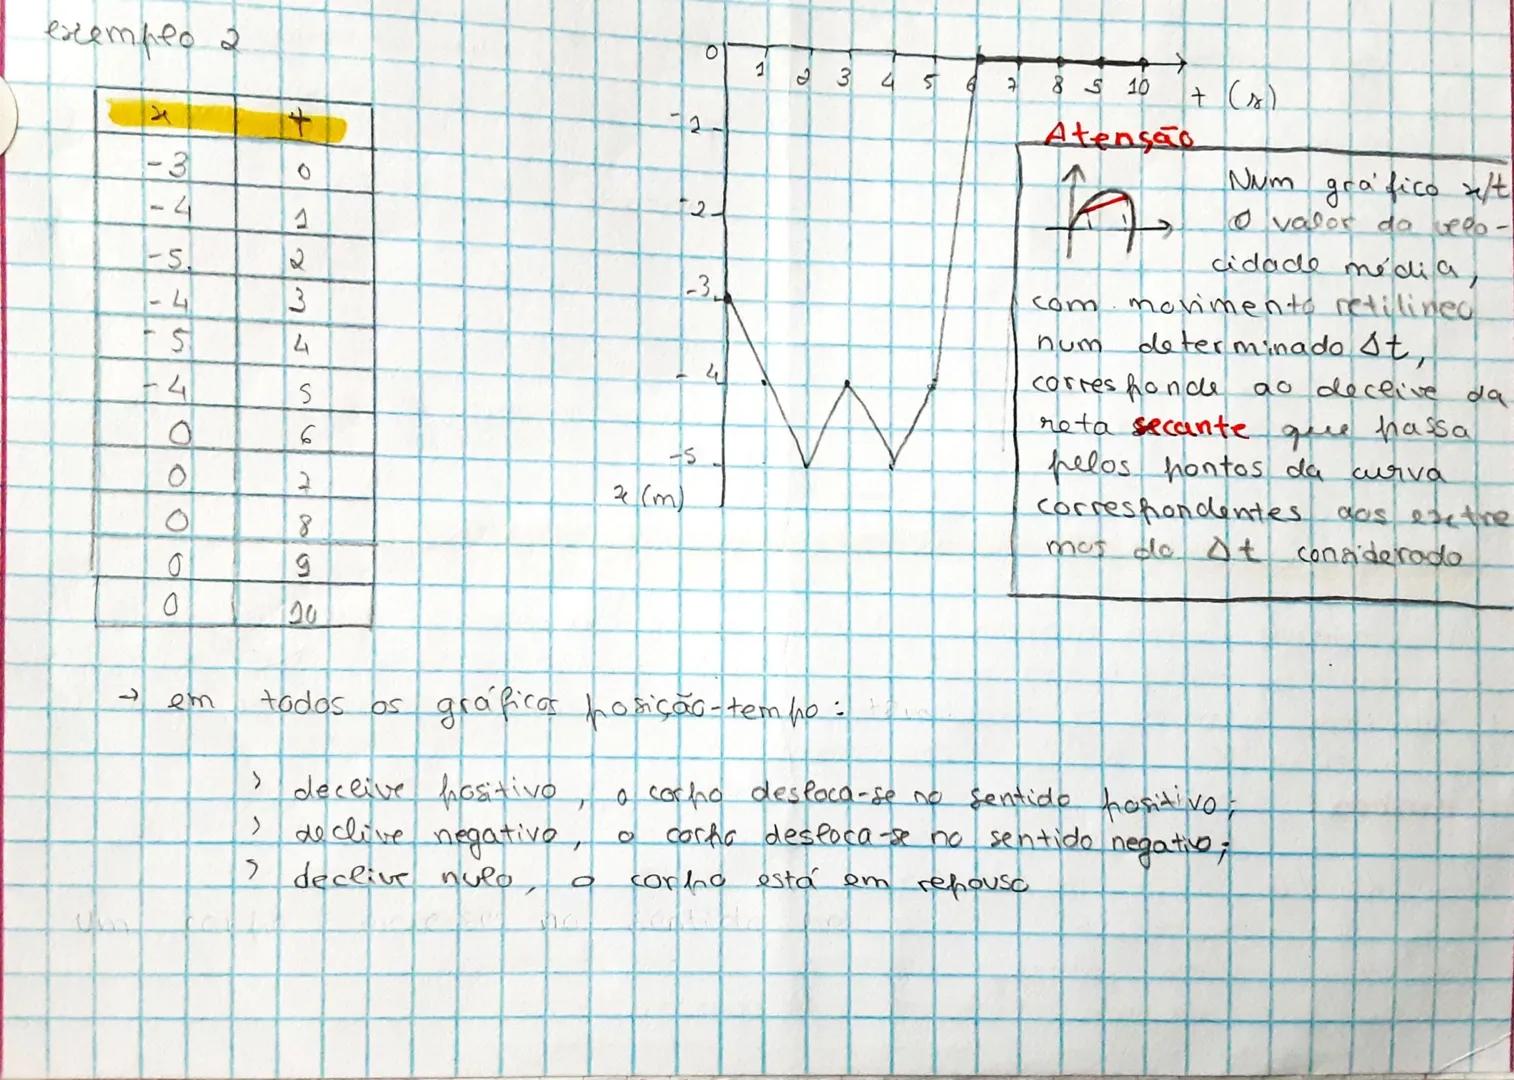 exemplo 2
x t
-3 0
-4 1
-5 2
-4 3
-5 4
-4 5
0 6
0 7
0 8
0 9
0 10
0
1 2 3 4 5 6 7 8 9 10 t (s)
-2
-2
-3
-4
-5
x (m)
Atensão
Num gráfico x/t
o valor da velo-
cidade média,
com movimento retilineo
num determinado Δt,
corresponde ao declive da
reta secante que passa
pelos pontos da curva
correspondentes aos extre
mos do Δt considerado
→ em todos os gráficos posição-tempo:
> declive positivo, o corpo desloca-se no sentido positivo;
> declive negativo, o corpo desloca-se no sentido negativo;
> declive nulo, o corpo está em repouso